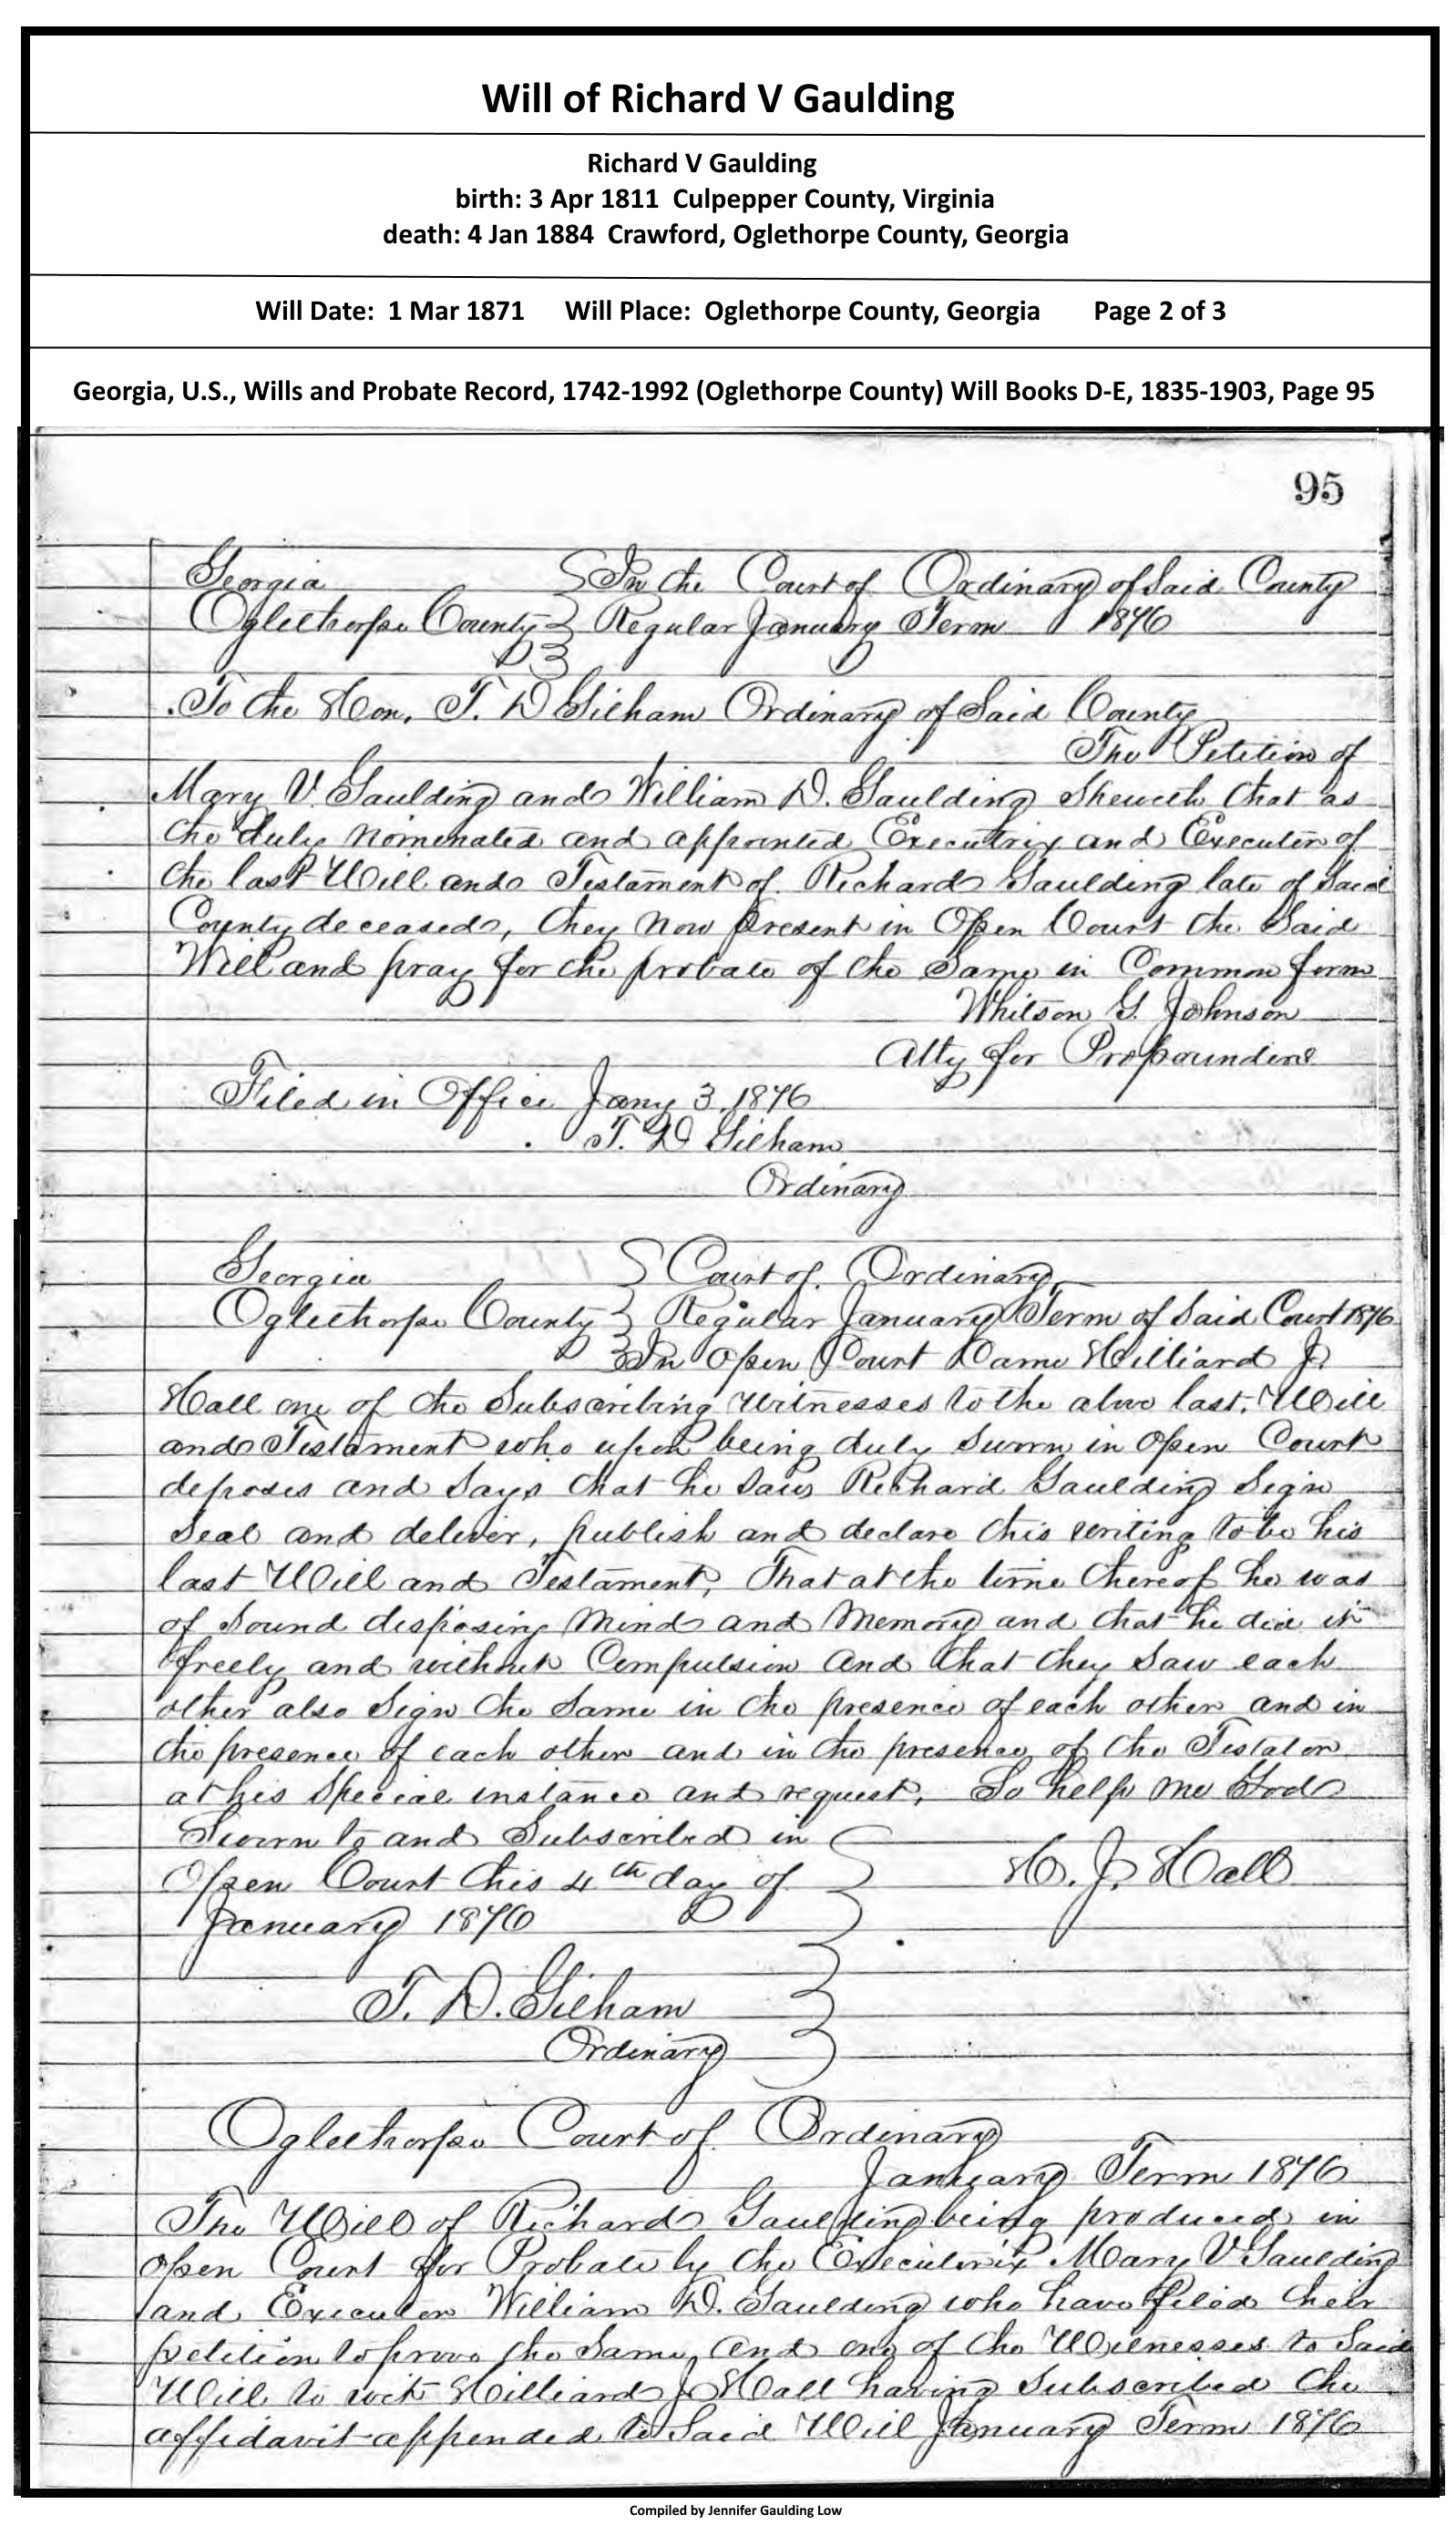 Will of Richard V Gaulding
Richard V Gaulding
birth: 3 Apr 1811 Culpepper County, Virginia
death: 4 Jan 1884 Crawford, Oglethorpe County, Georgia
Will Date: 1 Mar 1871 Will Place: Oglethorpe County, Georgia Page 2 of 3
Georgia, U.S., Wills and Probate Record, 1742-1992 (Oglethorpe County) Will Books D-E, 1835-1903, Page 95
95
Georgia In the Court of Ordinary of Said County
Oglethorpe County Regular January Term 1876
To the Hon. T. D Gilham Ordinary of Said County
The Petition of
Mary V. Gaulding and William D. Gaulding Sheweth that as
the duly nominated and appointed Executrix and Executor of
the last Will and Testament of Richard Gaulding late of Said
County deceased, they now present in Open Court the Said
Will and pray for the probate of the Same in Common form
Whitson G. Johnson
Atty for
Filed in Office Jany 3 1876
T. D Gilham
Ordinary
Georgia Court of Ordinary,
Oglethorpe County Regular January Term of Said Court 1876
In Open Court Came Hilliard J.
Hall one of the Subscribing Witnesses to the above last Will
and Testament who upon being duly Sworn in Open Court
deposes and Says that he Saw Richard Gaulding Sign
Seal and deliver, publish and declare this writing to be his
last Will and Testament, That at the time thereof he was
of Sound disposing Mind and Memory and that he did it
freely and without Compulsion and that they Saw each
other also Sign the Same in the presence of each other and in
the presence of each other and in the presence of the Testator
at his Special instance and request. So help me God
Sworn to and Subscribed in
Open Court this 4th day of H. J. Hall
January 1876
T. D. Gilham
Ordinary
Oglethorpe Court of Ordinary
January Term 1876
The Will of Richard Gaulding being produced in
open Court for Probate by the Executrix Mary V Gaulding
and Executor William D. Gaulding who have filed their
petition to prove the Same, and one of the Witnesses to Said
Will to wit Hilliard J Hall having Subscribed the
affidavit appended to Said Will January Term 1876
Compiled by Jennifer Gaulding Low